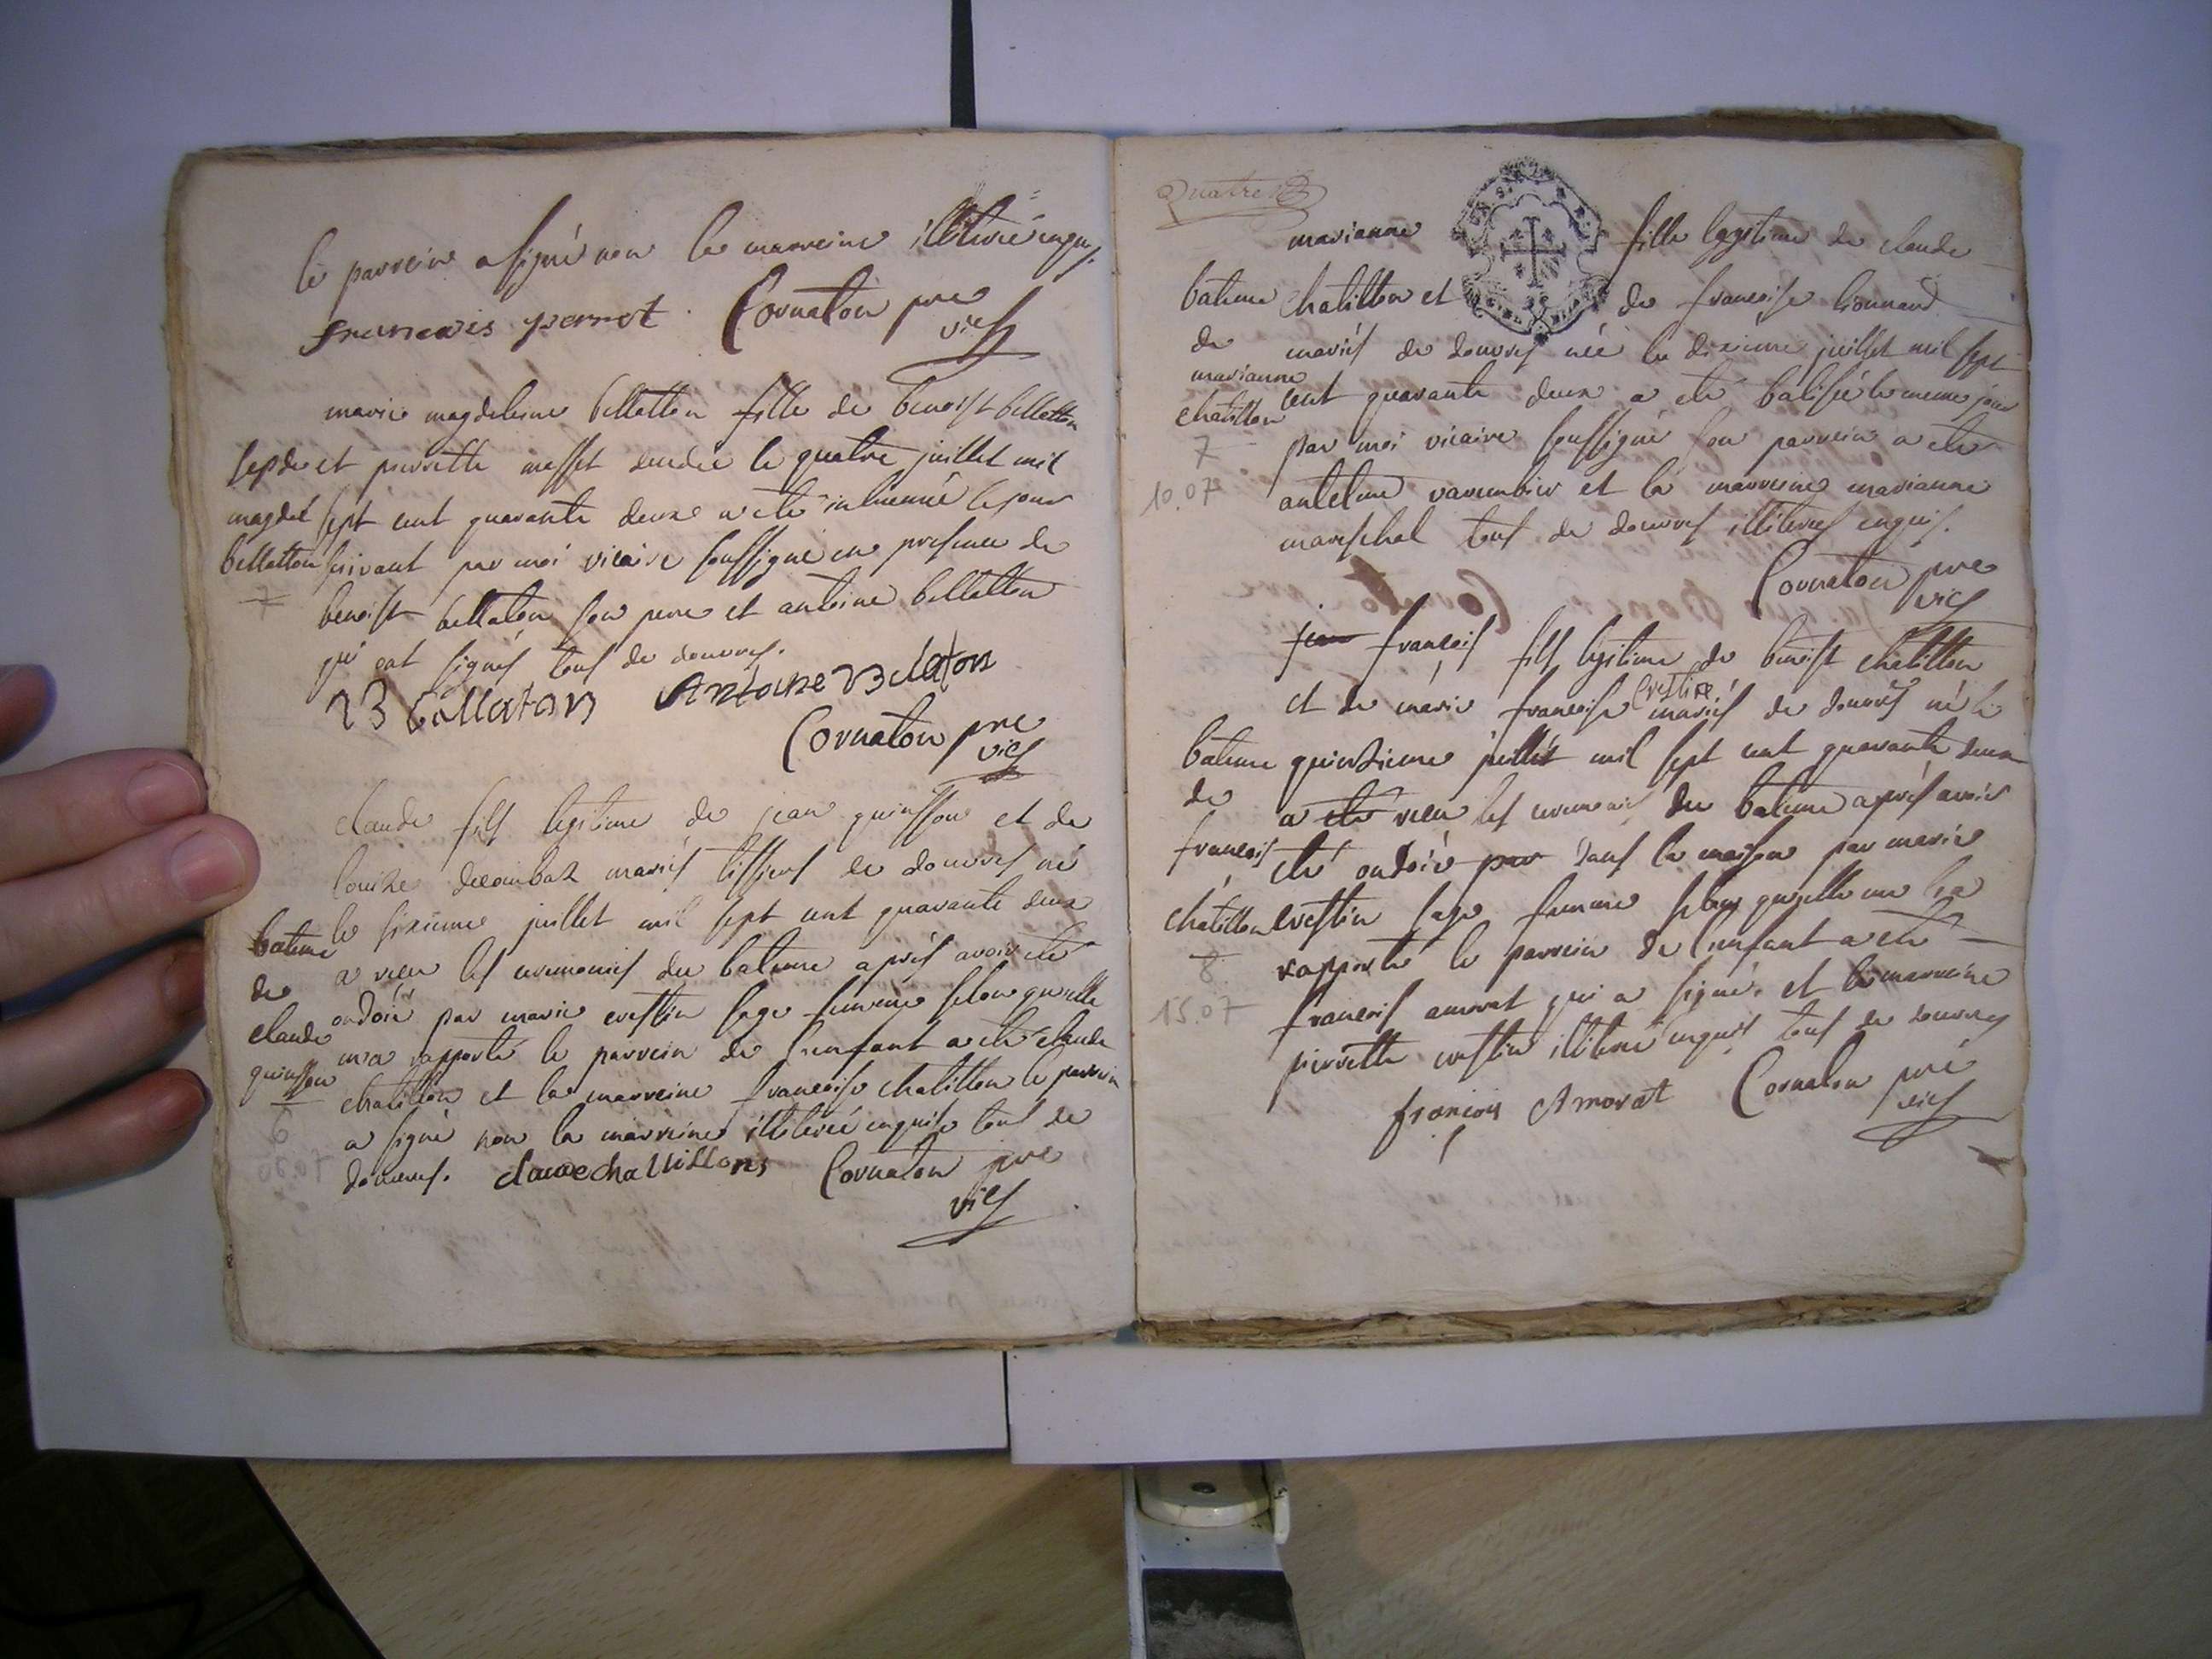 le parrein a signé non la marreine illiterée enquis.
francois perrot Cornaton pre
vics
marie magdeleine billatton fille de benoist billatton
sep de et pierrette messet decedée le quatre juillet mil
magdel sept cent quarante deux a eté inhumée le jour
billatton suivant par moi vicaire soussigné en presence de
7 benoist billaton son pere et antoine billatton
qui ont signés tous de douvres.
B billaton Antoine Bilaton
Cornaton pre
vics
claude fils legitime de jean quinsson et de
louise decombaz mariés tissiers de douvres né
bateme le sixieme juillet mil sept cent quarante deux
de a recu les ceremonies du bateme aprés avoir eté
claude ondoié par marie crestin sage femme selon quelle
quinsson m'a rapporté le parrein de l'enfant a eté claude
6 chatillon et la marreine francoise chatillon le parrein
a signé non la marreine illiterée enquise tous de
douvres. claude chatillons Cornaton pre
vics
Quatre
marianne fille legitime de claude
bateme chatillon et de francoise bonnard
de mariés de douvres née le dixieme juillet mil sept
marianne
chatillon cent quarante deux a eté batisée le meme jour
7 par moi vicaire soussigné son parrein a eté
10.07 antelme varembier et la marreine marianne
mareschal tous de douvres illiterés enquis.
Cornaton pre
vics
jean francois fils legitime de benoist chatillon
crestin
et de marie francoise mariés de douvres né le
bateme quinzieme juillet mil sept cent quarante deux
de a eté recu les ceremonies du bateme aprés avoir
francois eté ondoié par dans la maison par marie
chatillon crestin sage femme selon quelle me l'a
8 rapporté le parrein de l'enfant a eté
15.07 francois amorat qui a signé. et la marreine
pierrette crestin illiterée enquis tous de douvres
françois Amorat Cornaton pre
vics